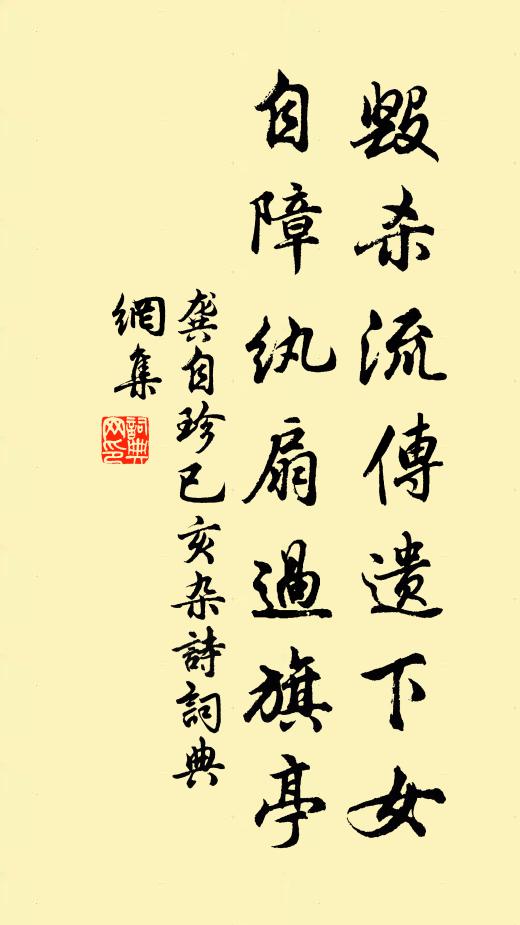 毀杀流傳遗下女
自障纨扇過旗亭
龚自珍己亥杂詩詞典
網集
詞典
网印